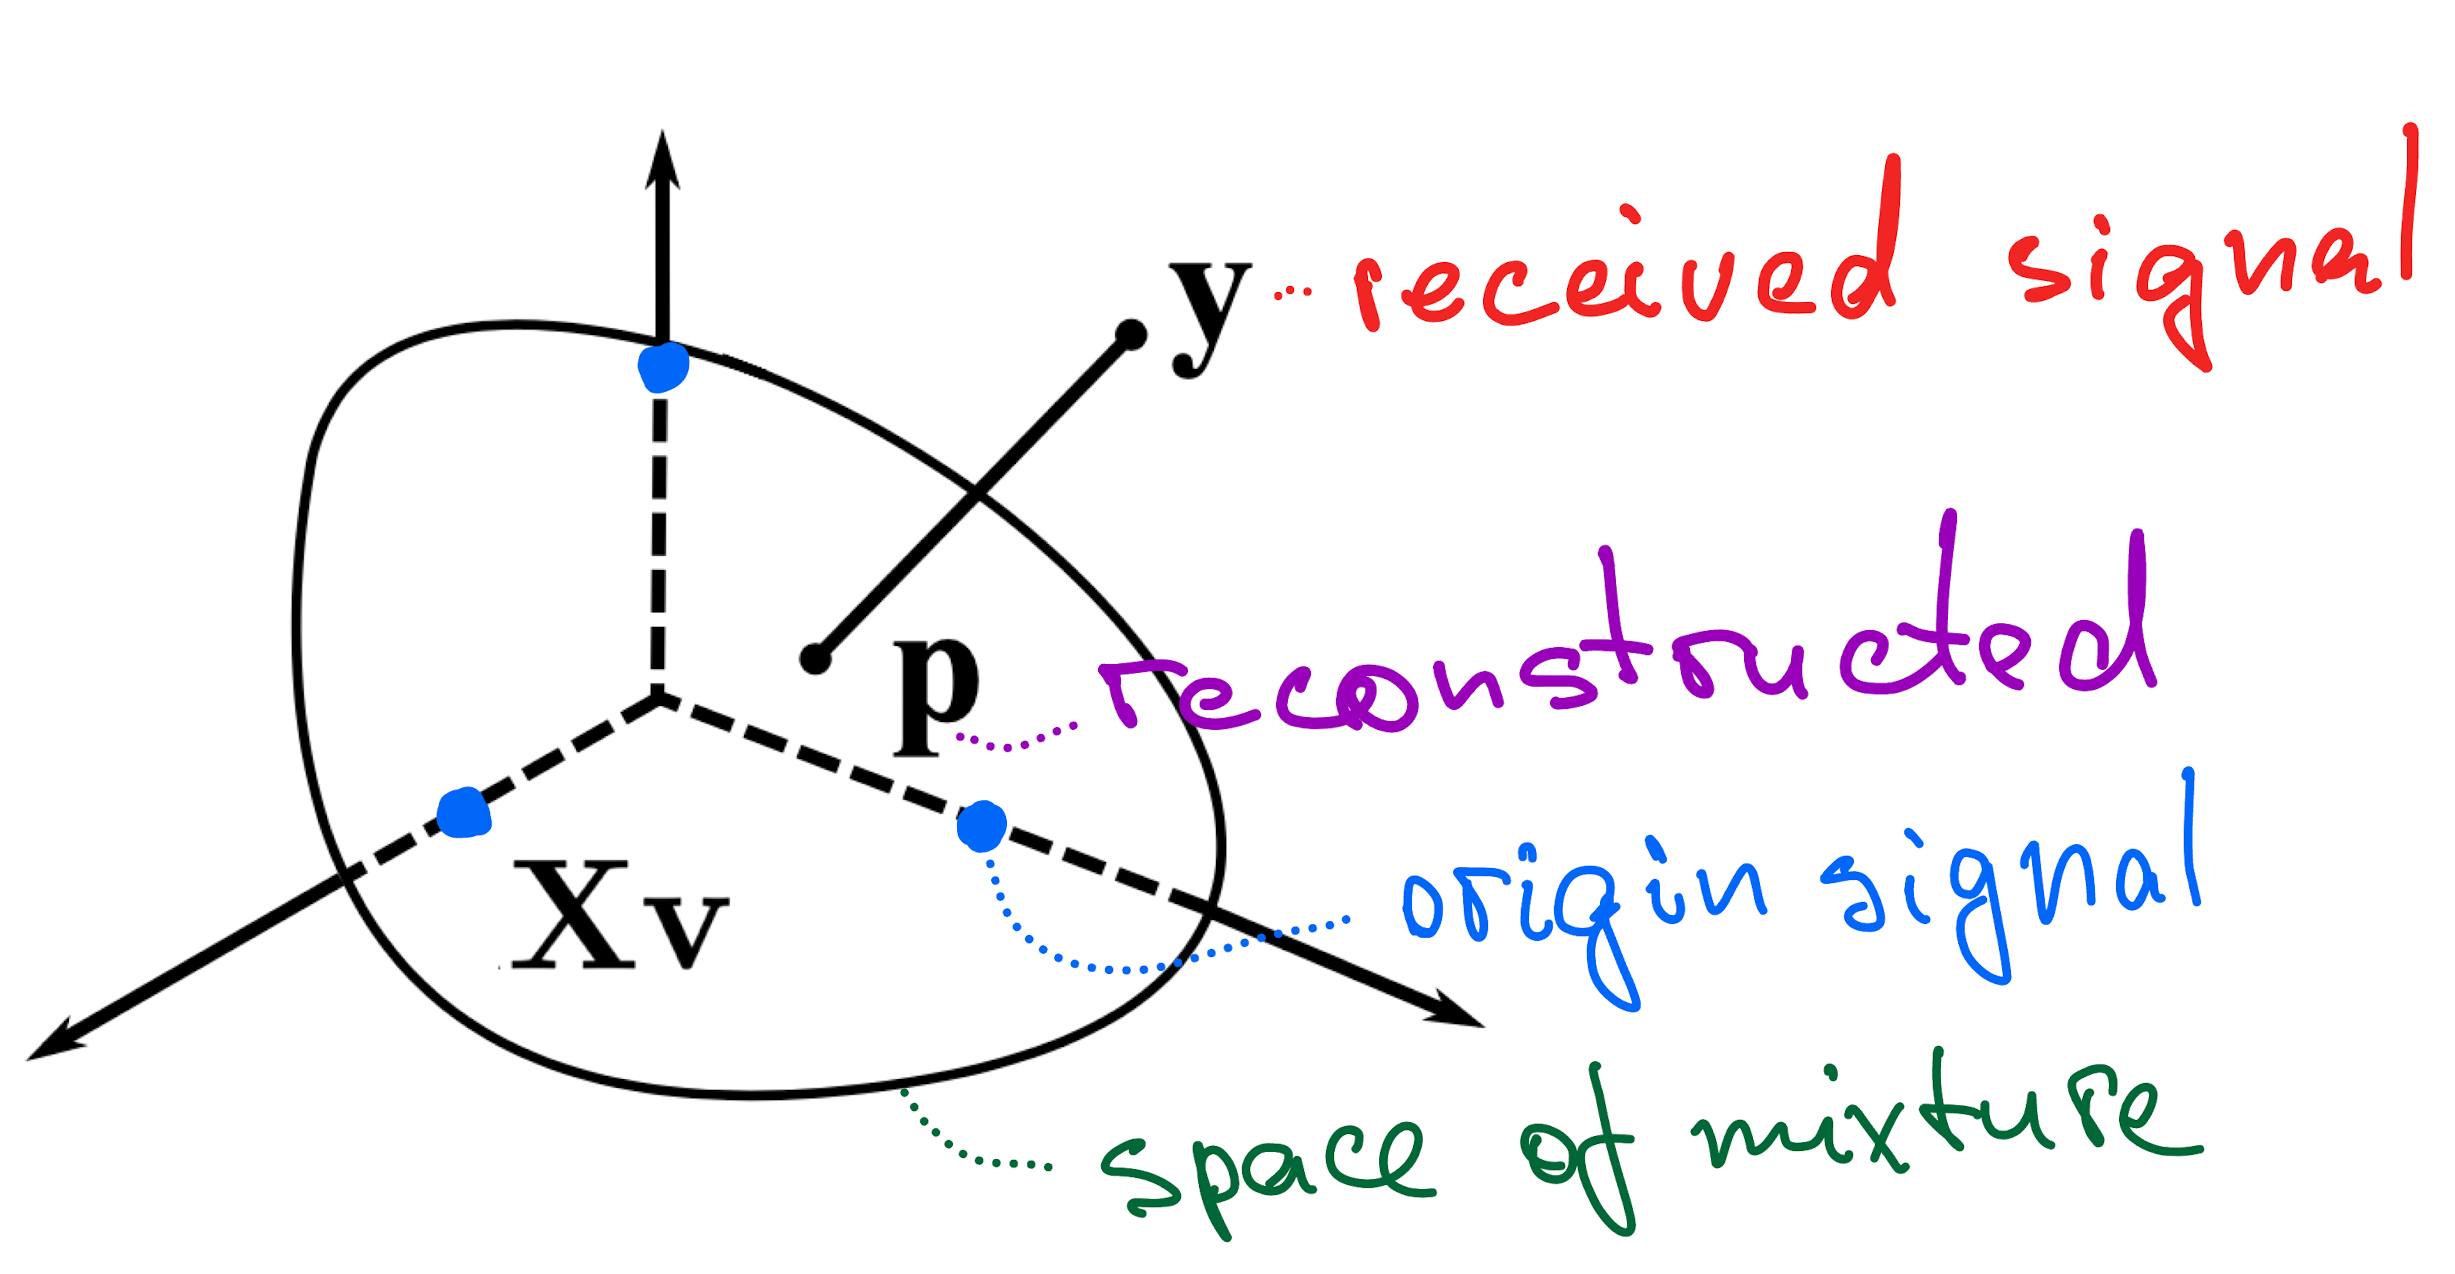 y received signal
p reconstructed
Xv origin signal
space of mixture